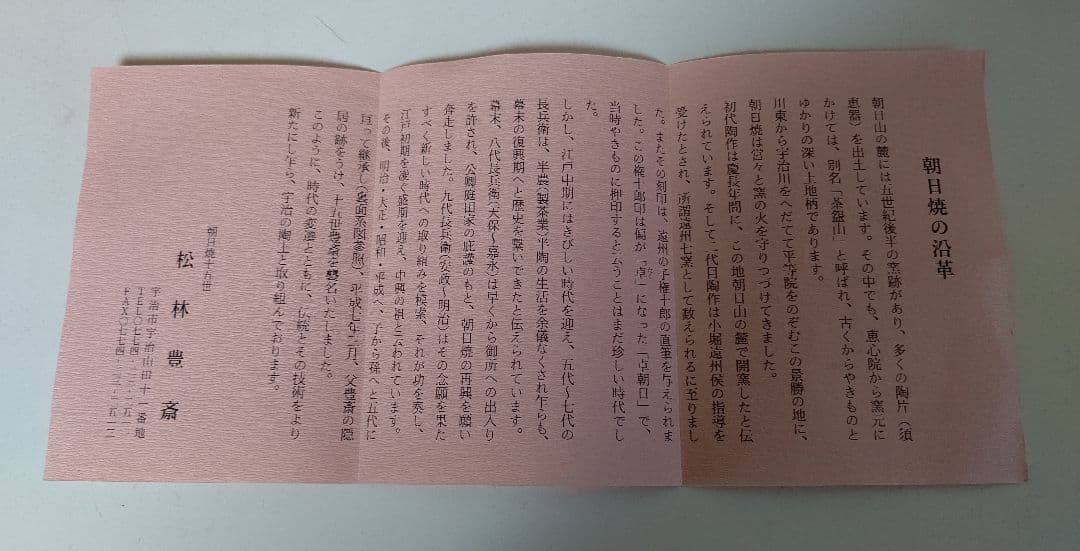 朝日焼の沿革
朝日山の麓には五世紀後半の窯跡があり、多くの陶片（須
恵器）を出土しています。その中でも、恵心院から窯元に
かけては、別名「茶盌山」と呼ばれ、古くからやきものと
ゆかりの深い土地柄であります。
川東から宇治川をへだてて平等院をのぞむこの景勝の地に、
朝日焼は営々と窯の火を守りつづけてきました。
初代陶作は慶長年間に、この地朝日山の麓で開窯したと伝
えられています。そして二代目陶作は小堀遠州侯の指導を
受けたとされ、所謂遠州七窯として数えられるに至りまし
た。またその刻印は、遠州の子権十郎の直筆を与えられま
した。この権十郎印は偏が「卓」になった「卓朝日」で、
当時やきものに押印すると云うことはまだ珍しい時代でし
た。
しかし、江戸中期にはきびしい時代を迎え、五代〜七代の
長兵衛は、半農（製茶業）半陶の生活を余儀なくされ乍らも、
幕末の復興期へと歴史を繋いできたと伝えられています。
幕末、八代長兵衛（天保〜嘉永）は早くから御所への出入り
を許され、公卿庭田家の庇護のもと、朝日焼の再興を願い
奔走しました。九代長兵衛（安政〜明治）はその念願を果た
すべく新しい時代への取り組みを模索、それが功を奏し、
江戸初期を凌ぐ盛期を迎え、中興の祖と云われています。
その後、明治・大正・昭和・平成へ、子から孫へと五代に
亘って継承し（裏面系図参照）、平成七年二月、父豊斎の隠
居の跡をうけ、十五世豊斎を襲名いたしました。
このように、時代の変遷とともに、伝統とその技術をより
新たにし乍ら、宇治の陶土と取り組んでおります。
朝日焼十五世
松林豊斎
宇治市宇治山田十一番地
ＴＥＬ〇七七四・二三・二五一一
ＦＡＸ〇七七四・二三・二五一三